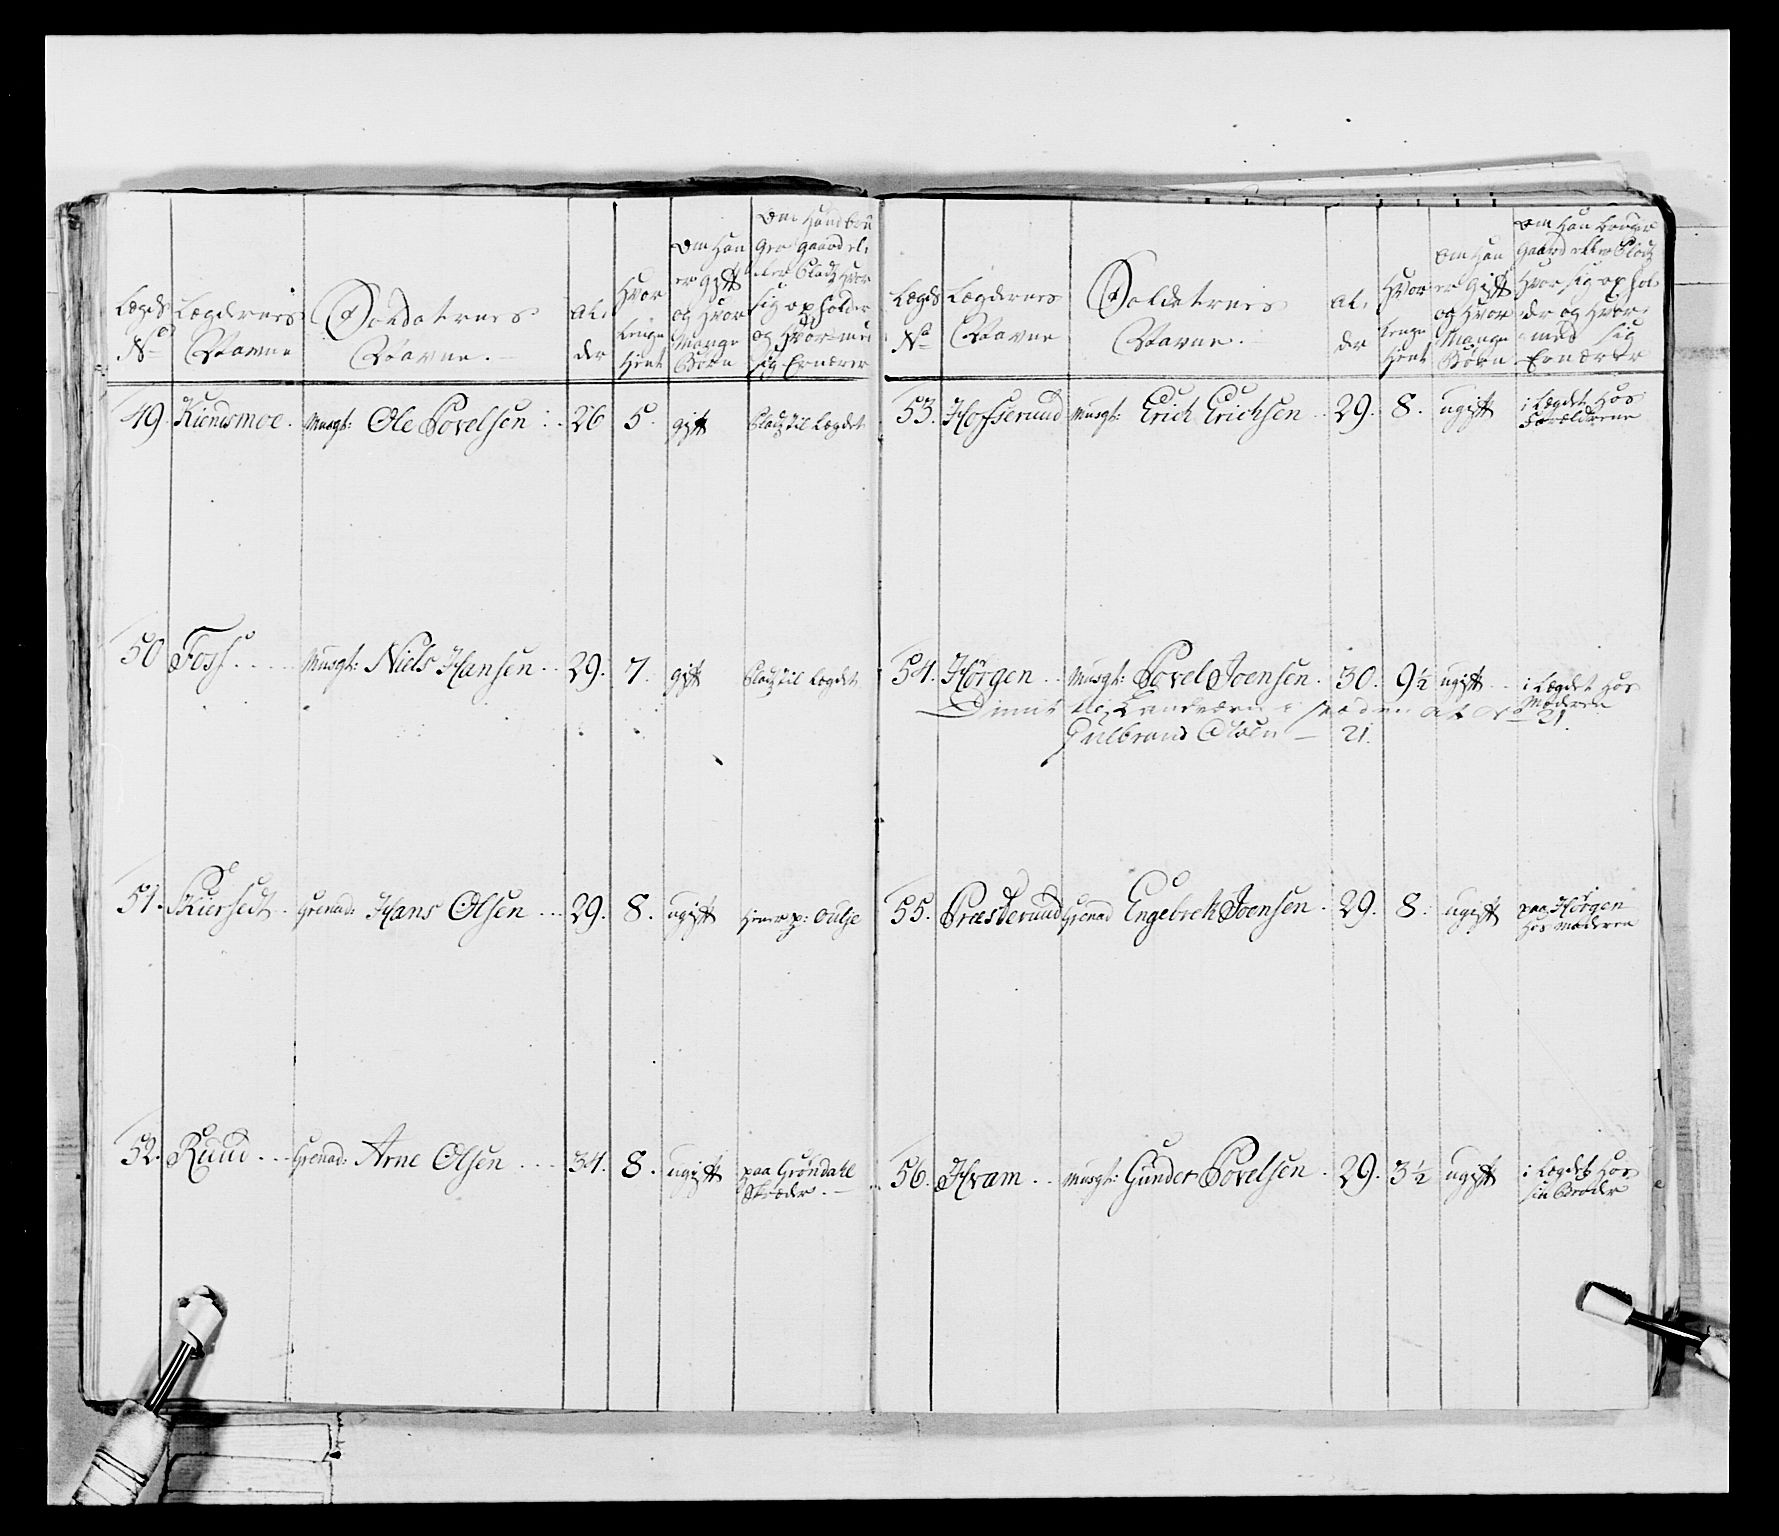 Lægds No
Lægdernes Navne
Soldaternes Navne.
Al: der
Hvor lenge tient
Om Han er gift og Hvor Mange Børn
Om Hand bruger gaard eller Pladz Hvor sig opholder og Hvor med sig Ernærer
49. Kiendsmoe. Musqt: Ole Povelsen 26 5. gift Pladz til Lægdet
50 Foss. Musqt: Niels Hansen 29. 7. gift Pladz til Lægdet
51. Grenad: Hans Olsen 29. 8. ugift
52. Ruud Grenad: Arne Olsen 34. 8. ugift paa Grøndall
Skræder.
Lægds No
Lægdernes Navne
Soldaternes Navne.
Al: der
Hvor lenge tient
Om Han er gift og Hvor Mange Børn
Om Han bruger Gaard eller Pladz Hvor sig opholder og Hvor med sig Ernærer
53. Hofserud Musqt: Erich Erichsen 29. 8. ugift i Lægdet hos
Forældrene
54. Hørgen Musqt: Povel Joensen. 30. 9½ ugift i Lægdet hos
Moderen
No 21
Gulbrand Olsen 21.
55. Præsterud Grenad Engebret Joensen 29. 8. ugift paa Hørgen
hos moderen
56. Hvam Musqt: Gunder Povelsen 29. 3½ ugift i Lægdet hos
sin Broder